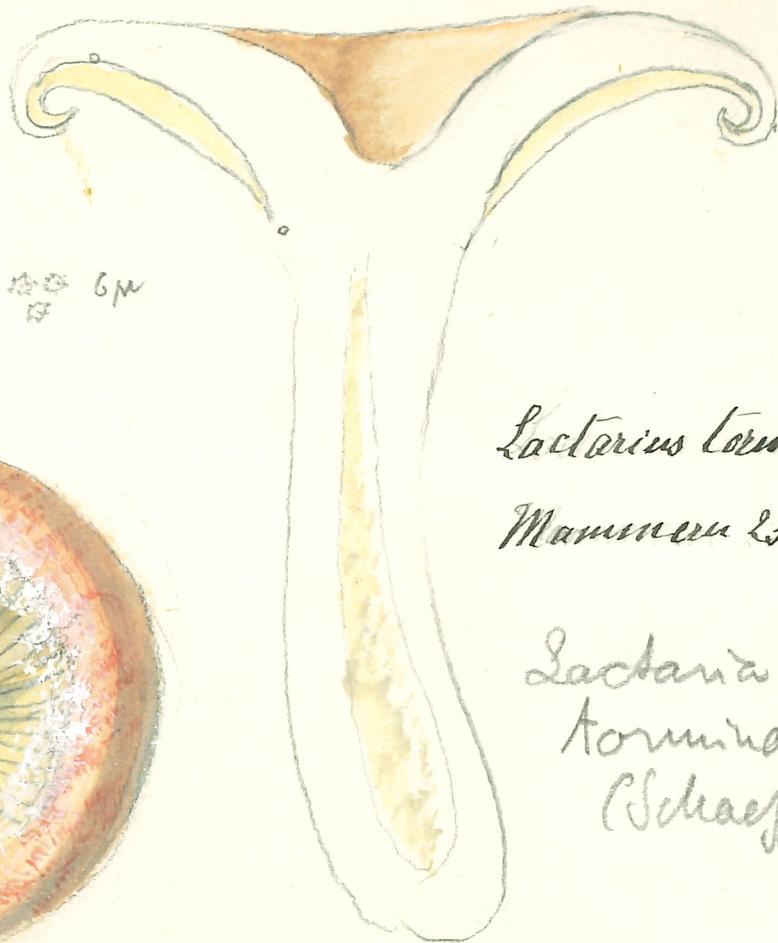 6 µ
Lactarius torm
Mammern 2
Lactaria
tormino
(Schaef